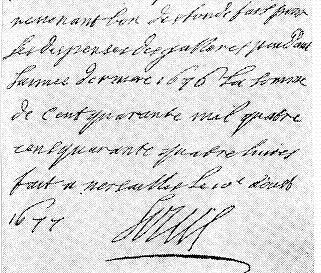 revenant bon des fonds fait pour
les despenses des galleres pendant
l'annee derniere 1676 la somme
de Cent quarante mil quatre
cent quarante quatre livres
fait a versailles le 10e d'aoust
1677